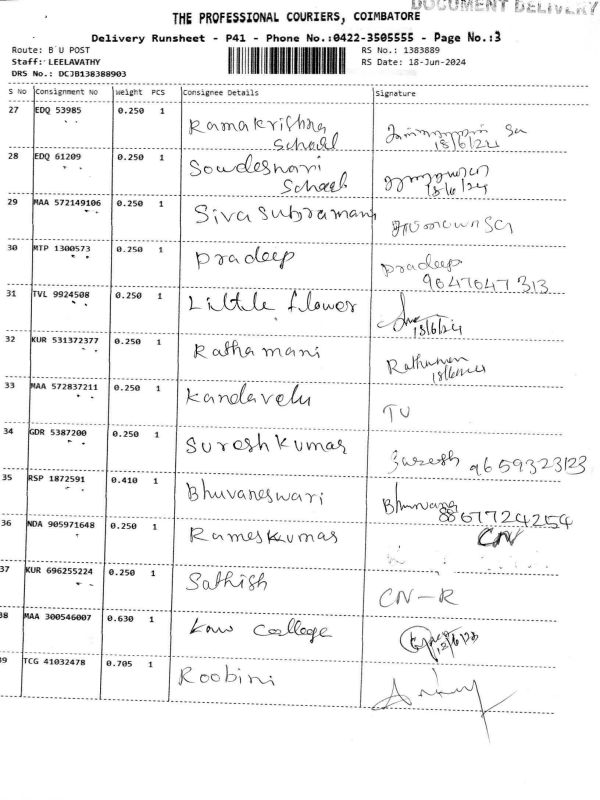 DOCUMENT DELIVERY
THE PROFESSIONAL COURIERS, COIMBATORE
Delivery Runsheet - P41 - Phone No.:0422-3505555 - Page No.:3
Route: B U POST RS No.: 1383889
Staff: LEELAVATHY RS Date: 18-Jun-2024
DRS No.: DCJB138388903
S No Consignment No Weight PCS Consignee Details Signature
27 EDQ 53985 0.250 1 Ramakrishna
School 18/6/24
28 EDQ 61209 0.250 1 Sowdeshwari
School 18/6/24
29 MAA 572149106 0.250 1 Sivasubramani
30 MTP 1300573 0.250 1 Pradeep Pradeep
9047047313
31 TVL 9924508 0.250 1 Little flower
18/6/24
32 KUR 531372377 0.250 1 Rathamani
33 MAA 572837211 0.250 1 Kandavelu TU
34 GDR 5387200 0.250 1 Sureshkumar Suresh 9659323123
35 RSP 1872591 0.410 1 Bhuvaneswari Bhuvana
8867724254
36 NDA 905971648 0.250 1 Rameskumar CN
37 KUR 696255224 0.250 1 Sathish CN-R
38 MAA 300546007 0.630 1 Law College
39 TCG 41032478 0.705 1 Roobini